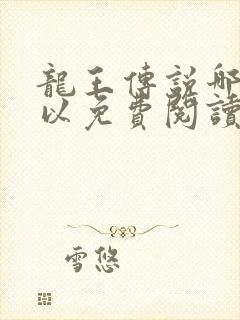 龍王傳說哪
以免費閱讀
雪悠